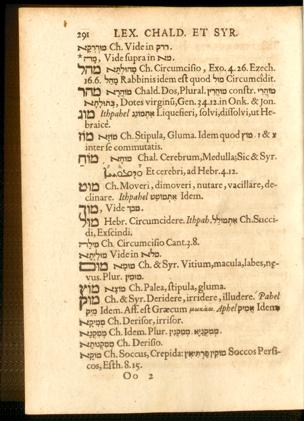 291 LEX. CHALD. ET SYR.
Ch. Vide in דרק
Vide supra in מא
מהל Ch. Circumcisio, Exo. 4. 26. Ezech.
16.6. מהל Rabbinis idem est quod מול Circumcidit.
מהר Chald. Dos, Plural. constr.
Dotes virginũ, Gen. 34.12. in Onk. & Jon.
מוג Ithpahel Liquefieri, solvi, dissolvi, ut He-
braicè.
מוז Ch. Stipula, Gluma. Idem quod מוץ ז & צ
inter se commutatis.
מוח Chal. Cerebrum, Medulla; Sic & Syr.
Et cerebri, ad Hebr. 4.12.
מוט Ch. Moveri, dimoveri, nutare, vacillare, de-
clinare. Ithpahel Idem.
מוך Vide מכך
מול Hebr. Circumcidere. Ithpah. Ch. Succi-
di, Exscindi.
Ch. Circumcisio Cant. 3.8.
Vide in מלא
מום Ch. & Syr. Vitium, macula, labes, næ-
vus. Plur. מומין
מוץ Ch. Palea, stipula, gluma.
מוק Ch. & Syr. Deridere, irridere, illudere. Pahel
Idem. Aff. est Græcum Aphel Idem
Ch. Derisor, irrisor.
Ch. Idem. Plur. Ch.
Ch. Derisio.
Ch. Soccus, Crepida: Soccos Persi-
cos, Esth. 8. 15.
Oo 2